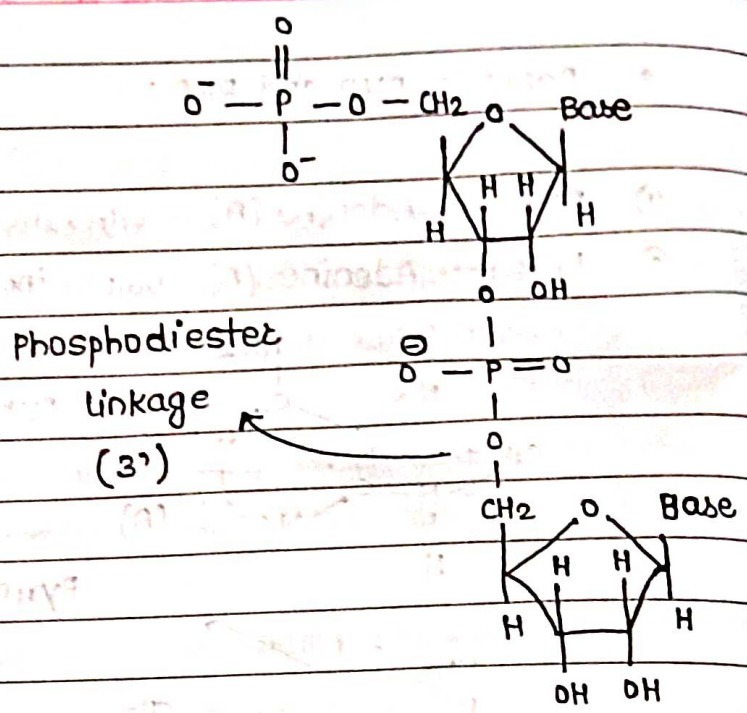 O
||
O⁻ — P — O — CH2 O Base
O⁻
H H
H H
O OH
Phosphodiester
⊖
O — P = O
linkage
O
(3')
CH2 O Base
H H
H H
OH OH